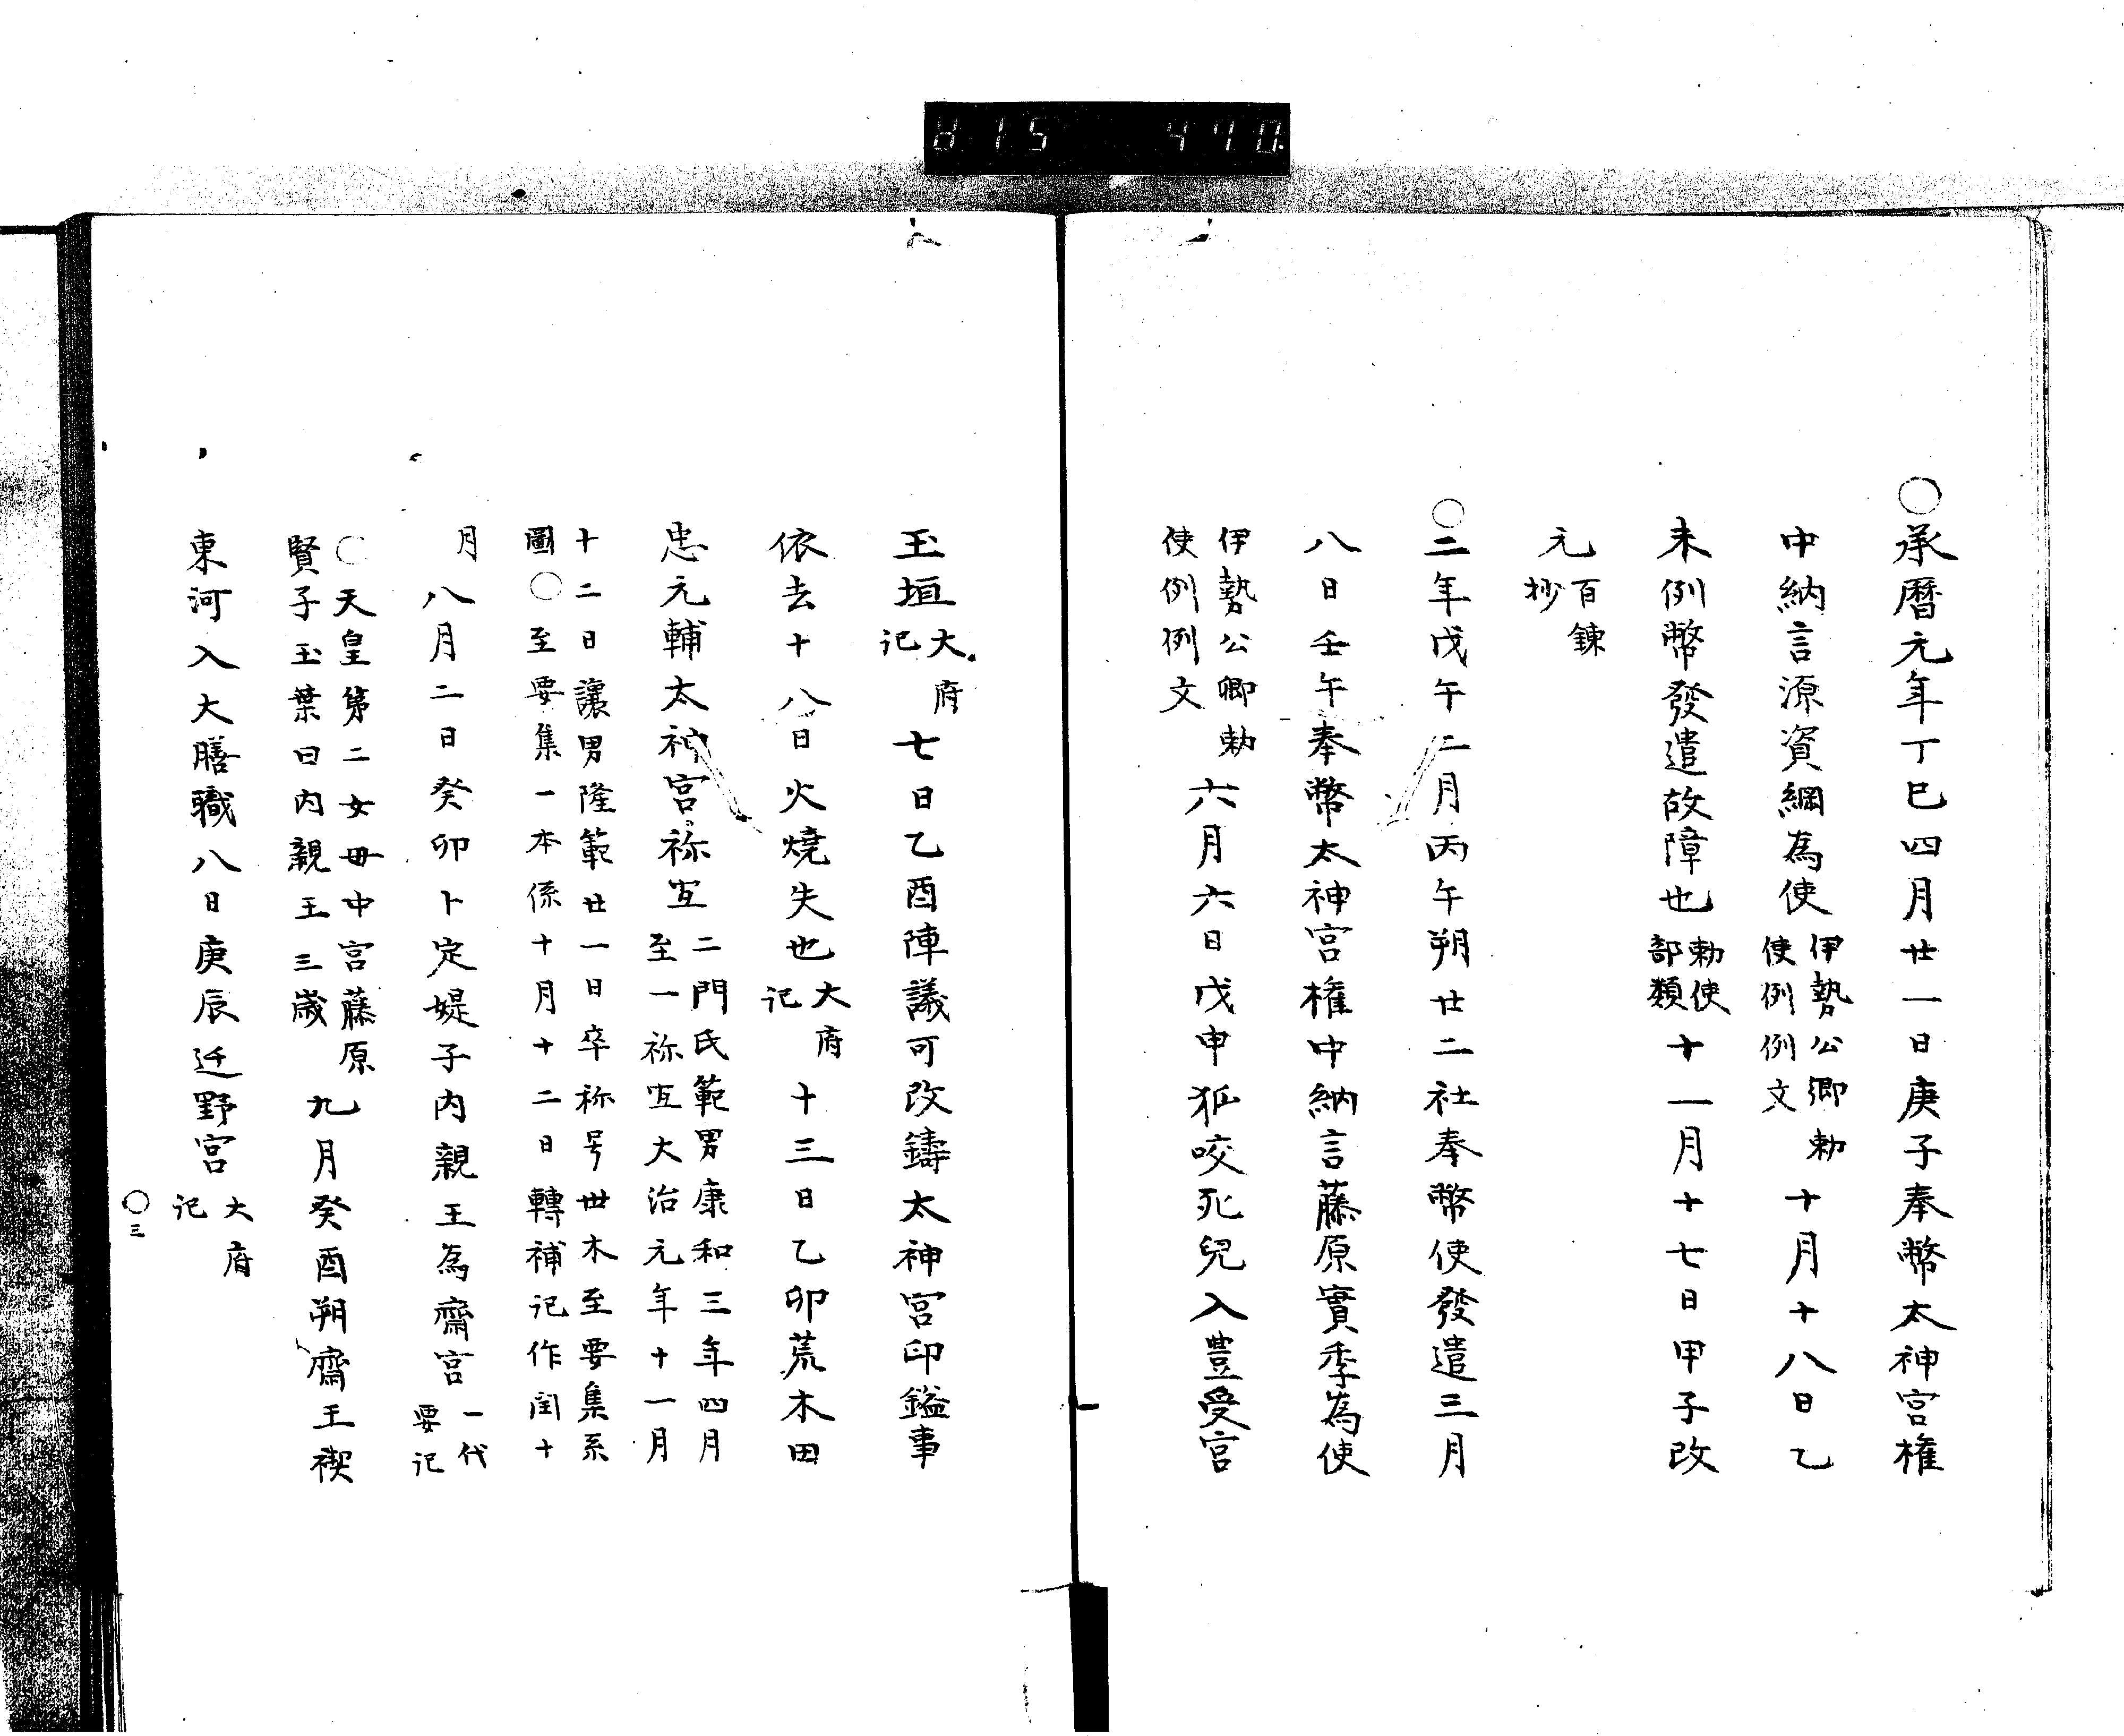 815 470
○承暦元年丁巳四月廿一日庚子奉幣太神宮権
中納言源資綱為使 伊勢公卿勅
使例例文 十月十八日乙
未例幣發遣故障也 勅使
部類 十一月十七日甲子改
元 百錬
抄
○二年戊午二月丙午朔廿二社奉幣使發遣三月
八日壬午奉幣太神宮権中納言藤原實季為使
伊勢公卿勅
使例例文 六月六日戊申狐咬死兒入豊受宮
玉垣 大府
记 七日乙酉陣議可改鑄太神宮印鎰事
依去十八日火燒失也 大府
记 十三日乙卯荒木田
忠元輔太神宮祢宜 二門氏範男康和三年四月
至一祢宜大治元年十一月
十二日讓男隆範廿一日卒称号丗木至要集系
圖○至要集一本係十月十二日轉補记作閏十
月 八月二日癸卯卜定媞子内親王為齋宮 一代
要记
○天皇第二女母中宮藤原
賢子玉葉曰内親王三歳 九月癸酉朔齋王禊
東河入大膳職八日庚辰迁野宮 大府
记
○三